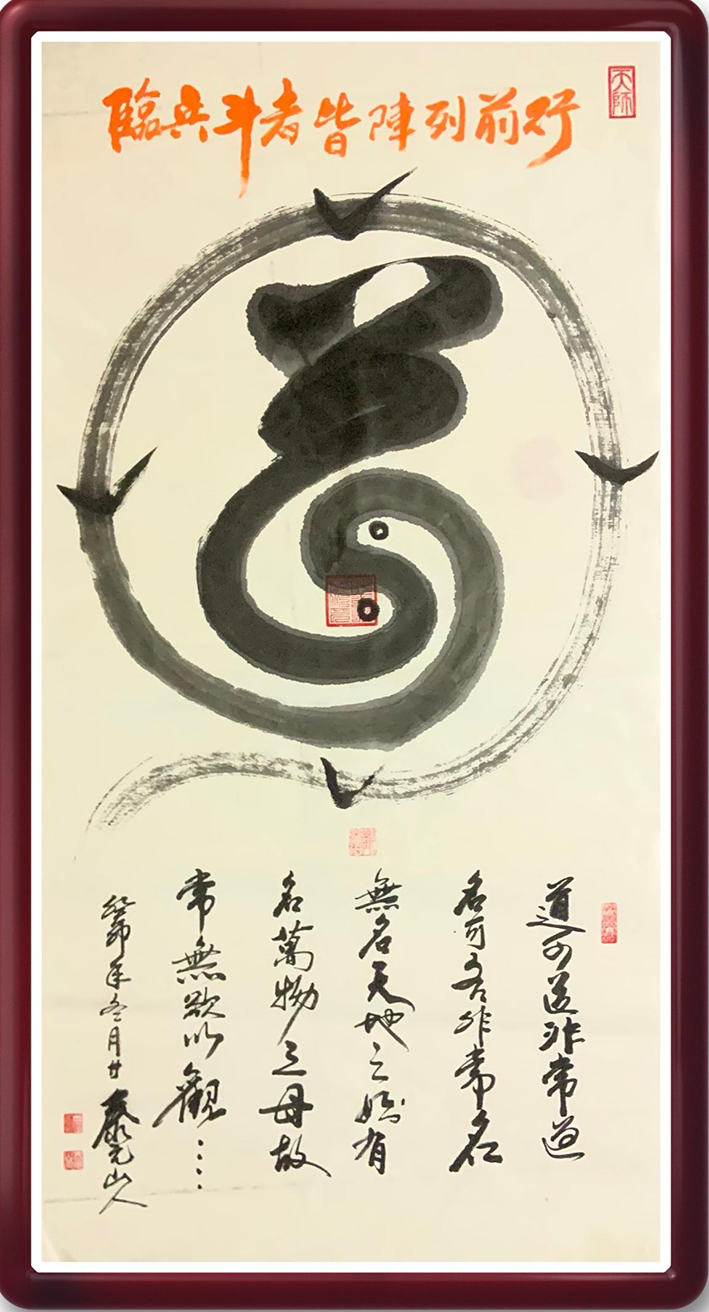 臨兵斗者皆陣列前行
天師
道可道非常道
名可名非常名
無名天地之始有
名萬物之母故
常無欲以觀····
癸卯年冬月廿 泰元山人